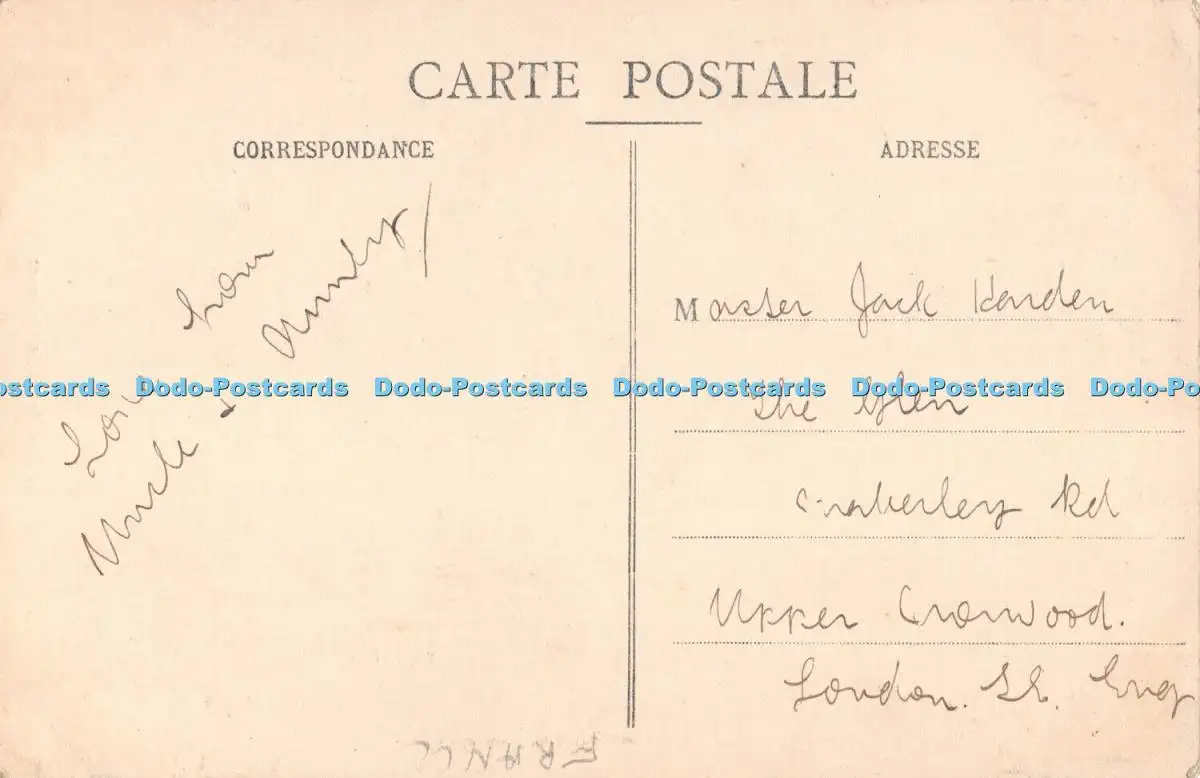 CARTE POSTALE
CORRESPONDANCE
ADRESSE
Love from
Uncle &
Master Jack
The Glen
Rd
Upper Norwood.
London. S.E. Eng
FRANCE
Postcards Dodo-Postcards Dodo-Postcards Dodo-Postcards Dodo-Postcards Dodo-Post